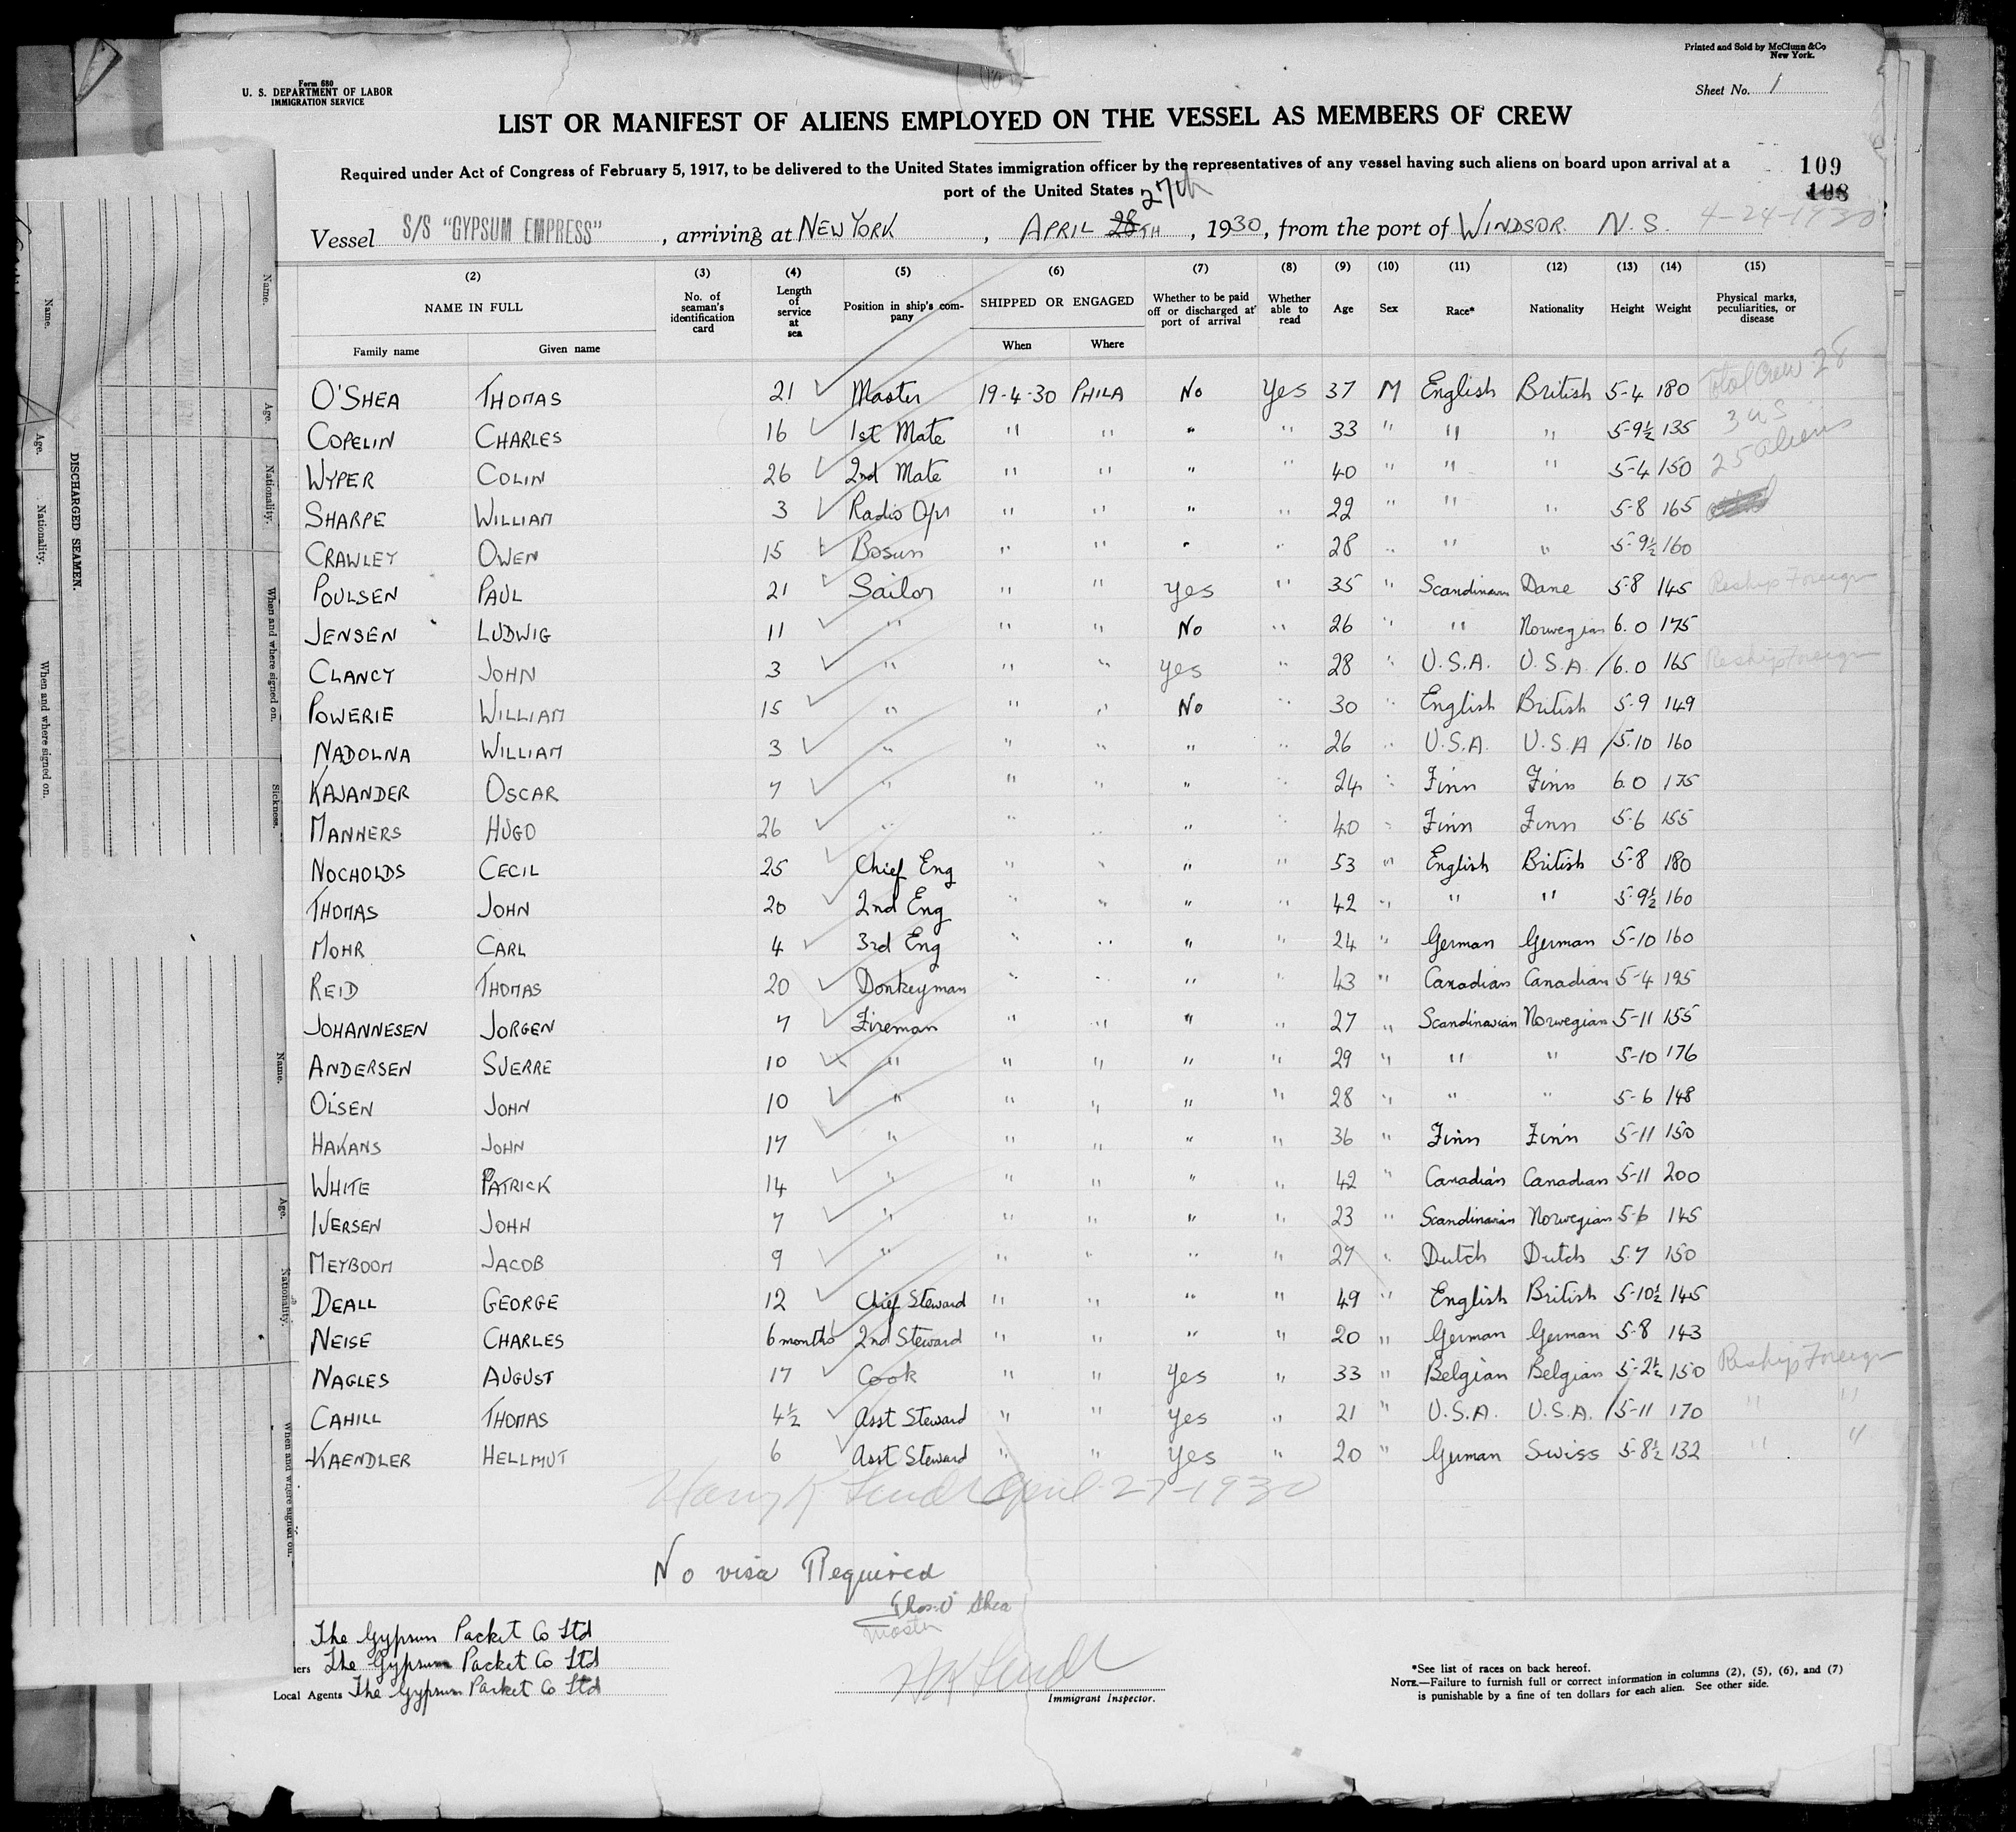 Printed and Sold by McClunn & Co
New York.
Form 680
U. S. DEPARTMENT OF LABOR
IMMIGRATION SERVICE
Sheet No. 1
LIST OR MANIFEST OF ALIENS EMPLOYED ON THE VESSEL AS MEMBERS OF CREW
Required under Act of Congress of February 5, 1917, to be delivered to the United States immigration officer by the representatives of any vessel having such aliens on board upon arrival at a
port of the United States
109
108
27th
Vessel S/S "GYPSUM EMPRESS", arriving at NEW YORK, APRIL 28TH, 1930, from the port of WINDSOR. N.S. 4-24-1930
(2) (3) (4) (5) (6) (7) (8) (9) (10) (11) (12) (13) (14) (15)
NAME IN FULL No. of seaman's identification card Length of service at sea Position in ship's company SHIPPED OR ENGAGED Whether to be paid off or discharged at port of arrival Whether able to read Age Sex Race* Nationality Height Weight Physical marks, peculiarities, or disease
Family name Given name When Where
O'SHEA THOMAS 21 Master 19-4-30 PHILA No Yes 37 M English British 5-4 180 Total Crew 28
COPELIN CHARLES 16 1st Mate " " " " 33 " " " 5-9½ 135 3 US
WYPER COLIN 26 2nd Mate " " " " 40 " " " 5-4 150 25 aliens
SHARPE WILLIAM 3 Radio Opr " " " " 22 " " " 5-8 165
CRAWLEY OWEN 15 Bosun " " " " 28 " " " 5-9½ 160
POULSEN PAUL 21 Sailor " " Yes " 35 " Scandinavn Dane 5-8 145 Reship Foreign
JENSEN LUDWIG 11 " " " No " 26 " " Norwegian 6.0 175
CLANCY JOHN 3 " " " Yes " 28 " U.S.A. U.S.A. 6.0 165 Reship Foreign
POWERIE WILLIAM 15 " " " No " 30 " English British 5-9 149
NADOLNA WILLIAM 3 " " " " " 26 " U.S.A. U.S.A 5.10 160
KAJANDER OSCAR 7 " " " " " 24 " Finn Finn 6.0 175
MANNERS HUGO 26 " " " " " 40 " Finn Finn 5-6 155
NOCHOLDS CECIL 25 Chief Eng " " " " 53 " English British 5-8 180
THOMAS JOHN 20 2nd Eng " " " " 42 " " " 5-9½ 160
MOHR CARL 4 3rd Eng " " " " 24 " German German 5-10 160
REID THOMAS 20 Donkeyman " " " " 43 " Canadian Canadian 5-4 195
JOHANNESEN JORGEN 7 Fireman " " " " 27 " Scandinavian Norwegian 5-11 155
ANDERSEN SVERRE 10 " " " " " 29 " " " 5-10 176
OLSEN JOHN 10 " " " " " 28 " " " 5-6 148
HAKANS JOHN 17 " " " " " 36 " Finn Finn 5-11 150
WHITE PATRICK 14 " " " " " 42 " Canadian Canadian 5-11 200
IVERSEN JOHN 7 " " " " " 23 " Scandinavian Norwegian 5-6 145
MEYBOOM JACOB 9 " " " " " 27 " Dutch Dutch 5.7 150
DEALL GEORGE 12 Chief Steward " " " " 49 " English British 5-10½ 145
NEISE CHARLES 6 months 2nd Steward " " " " 20 " German German 5-8 143
NAGLES AUGUST 17 Cook " " Yes " 33 " Belgian Belgian 5-2½ 150 Reship Foreign
CAHILL THOMAS 4½ Asst Steward " " Yes " 21 " U.S.A. U.S.A. 5-11 170 " "
KAENDLER HELLMUT 6 Asst Steward " " Yes " 20 " German Swiss 5-8½ 132 " "
April 27-1930
No visa Required
Thos. O'Shea
Master
The Gypsum Packet Co Ltd
The Gypsum Packet Co Ltd
Local Agents The Gypsum Packet Co Ltd
Immigrant Inspector.
*See list of races on back hereof.
NOTE.—Failure to furnish full or correct information in columns (2), (5), (6), and (7)
is punishable by a fine of ten dollars for each alien. See other side.
DISCHARGED SEAMEN.
Name.
Age.
Nationality.
When and where signed on.
Name.
Age.
Nationality.
When and where signed on.
Sickness.
Name.
Age.
Nationality.
When and where signed on.